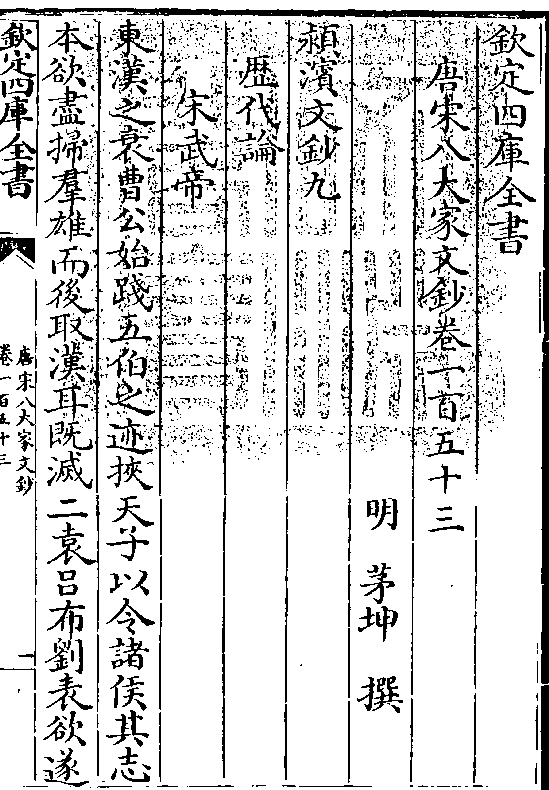 欽定四庫全書
唐宋八大家文鈔卷一百五十三
明 茅坤 撰
潁濱文鈔九
歴代論
宋武帝
東漢之衰曹公始踐五伯之迹挾天子以令諸侯其志
本欲盡掃羣雄而後取漢耳既滅二袁吕布劉表欲遂
欽定四庫全書
唐宋八大家文鈔
卷一百五十三
一